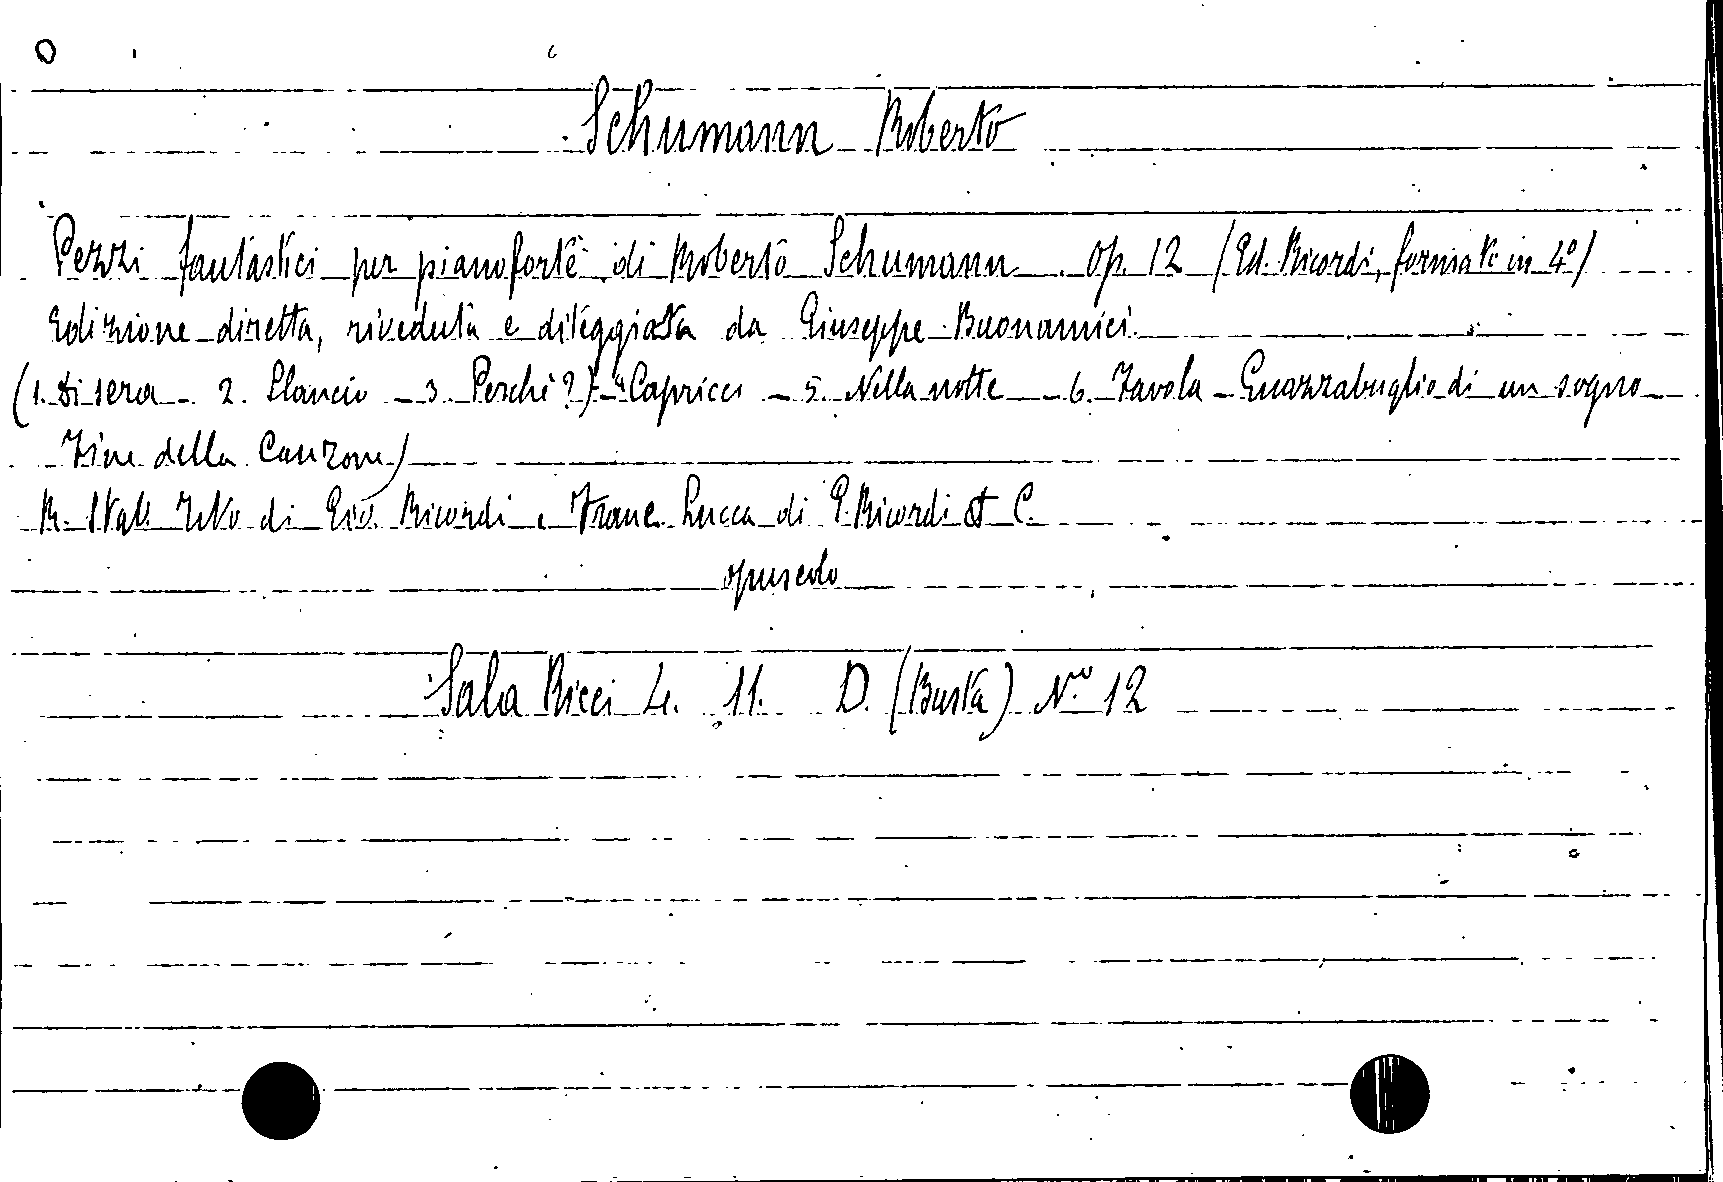 Schumann Roberto
Pezzi fantastici per pianoforte di Roberto Schumann Op. 12 (Ed. Ricordi, formato in 4º)
Edizione diretta, riveduta e diteggiata da Giuseppe Buonamici.
(1. Di sera - 2. Slancio - 3 Perchè?) - 4 Capricci - 5. Nella notte - 6. Favola - Guazzabuglio di un sogno
Fine della Canzone)
R. Stab. Tito di Gio. Ricordi e Franc. Lucca di G. Ricordi & C.
opuscolo
Sala Ricci L. 11. D. (Busta) Nº 12